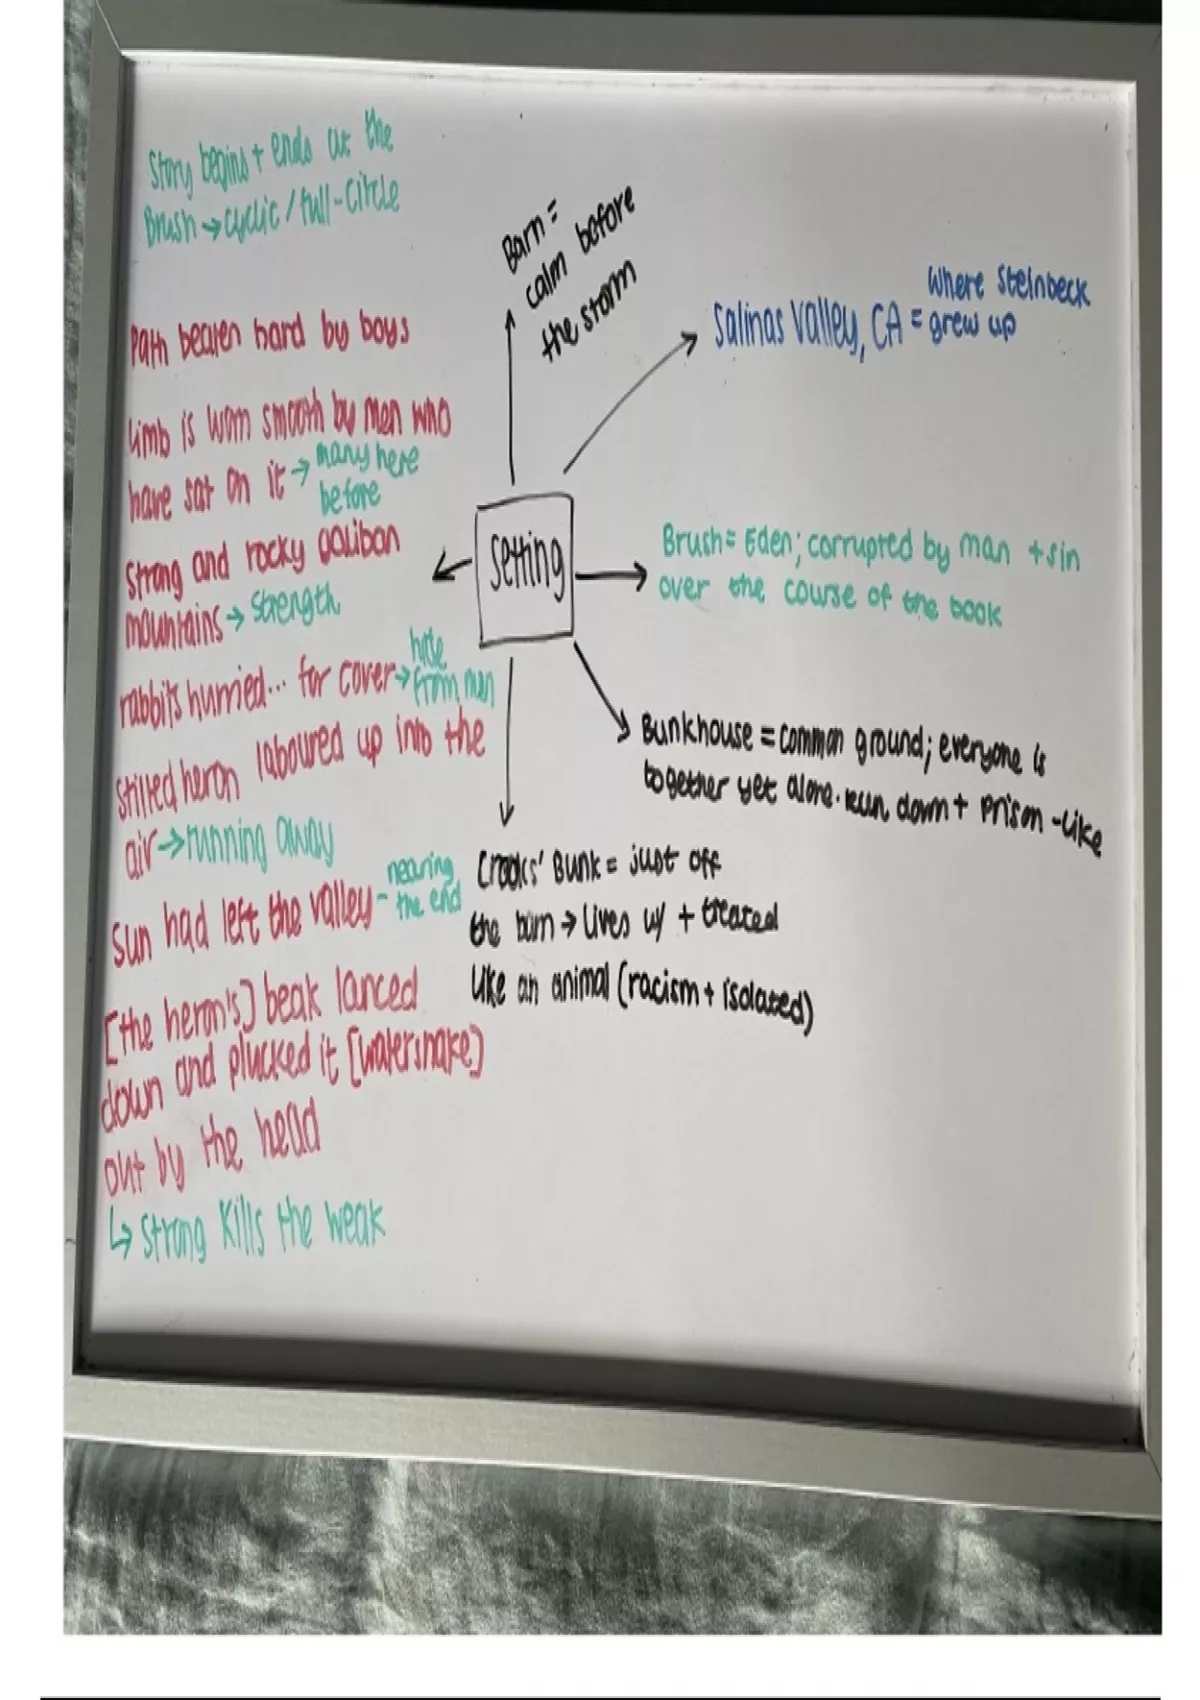 Story begins + ends at the
Brush → cyclic / full-circle
Path beaten hard by boys
limb is worn smooth by men who
have sat on it → many here
before
Strong and rocky Galiban
mountains → strength
rabbits hurried... for cover → hide
from men
stilted heron laboured up into the
air → running away
Sun had left the valley - nearing
the end
[the heron's] beak lanced
down and plucked it [watersnake]
out by the head
↳ strong kills the weak
Barn =
calm before
the storm
Salinas Valley, CA = where Steinbeck
grew up
Setting
Brush = Eden; corrupted by man + sin
over the course of the book
Bunkhouse = common ground; everyone is
together yet alone. run down + prison-like
Crooks' Bunk = just off
the barn → lives w/ + treated
like an animal (racism + isolated)